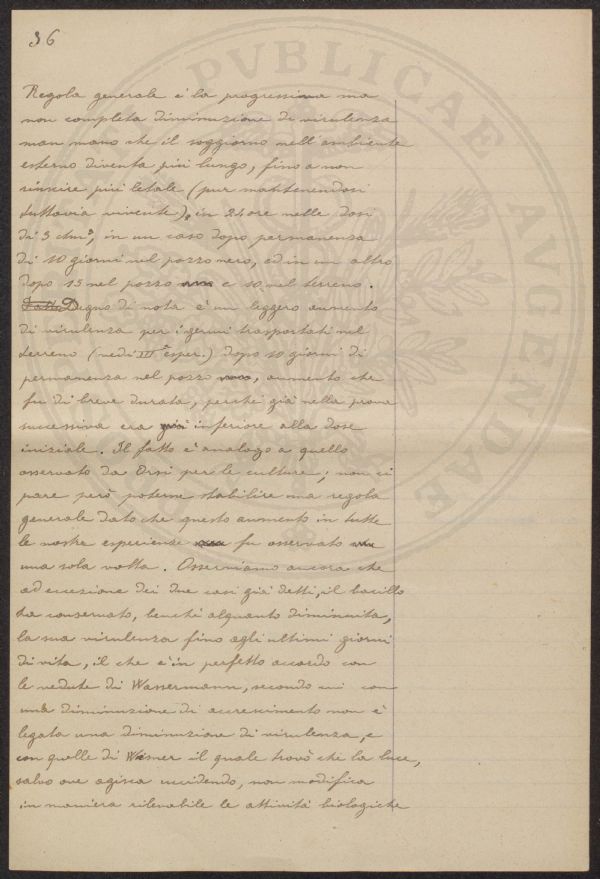 36
PVBLICAE AVGENDAE
Regola generale è la progressiva ma
non completa diminuzione di virulenza
man mano che il soggiorno nell'ambiente
esterno diventa più lungo, fino a non
riuscire più letale (pur mantenendosi
tuttavia vivente), in 24 ore nelle dosi
di 3 cmc, in un caso dopo permanenza
di 10 giorni nel pozzo nero, ed in un altro
dopo 15 nel pozzo e 10 nel terreno.
Degno di nota è un leggero aumento
di virulenza per i germi trasportati nel
terreno (vedi IIIª esper.) dopo 10 giorni di
permanenza nel pozzo, aumento che
fu di breve durata, perché già nella prova
successiva era già inferiore alla dose
iniziale. Il fatto è analogo a quello
osservato da Orsi per le culture; non ci
pare però poterne stabilire una regola
generale dato che questo aumento in tutte
le nostre esperienze fu osservato
una sola volta. Osserviamo ancora che
ad eccezione dei due casi già detti, il bacillo
ha conservato, benché alquanto diminuita,
la sua virulenza fino agli ultimi giorni
di vita, il che è in perfetto accordo con
le vedute di Wassermann, secondo cui con
una diminuzione di accrescimento non è
legata una diminuzione di virulenza, e
con quelle di il quale trovò che la luce,
salvo ove agisca uccidendo, non modifica
in maniera rilevabile le attività biologiche